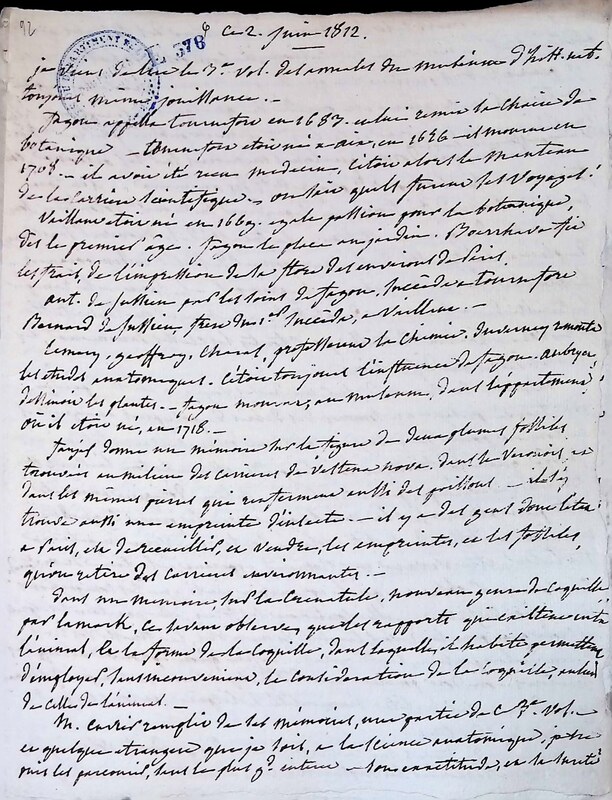 92
ce 2. juin 1812.
376
je viens de lire le 3e. vol. des annales du muséum d'hist. nat.
toujours même jouissance. —
fagon appella tournefort en 1683. et lui remit la chaire de
botanique — tournefort étoit né a aix, en 1656 — il mourut en
1708 — il avoit été reçu medecin, c'étoit alors le manteau
de la carrière scientifique. — on sait quels furent ses voyages.
Vaillant étoit né en 1669. egale passion pour la botanique,
dès le premier age. fagon le place au jardin. Boerrhave fit
les frais, de l'impression de la flore des environs de Paris.
ant. de Jussieu par les soins de fagon, succède a tournefort
Bernard de Jussieu, frère du 1er. succède, a Vaillant. —
Lemery, geoffroy, charas, professerent la chimie. duverney monta
les etudes anatomiques. c'étoit toujours l'influence de fagon. aubriet
dessinoit les plantes — fagon mourut, au museum, dans l'appartement
où il étoit né, en 1718. —
faujas donne un mémoire sur la figure de deux plumes fossiles
trouvées au milieu des carrières de vestena nova. dans le Veronois, et
dans les mêmes pierres qui renferment aussi des poissons —
trouve aussi une empreinte d'insecte. — il y a des gens dont l'état
a Paris, est de recueillir, et vendre, les empreintes, et les fossiles,
qu'on retire des carrières environnantes. —
dans un mémoire, sur la nouveau genre de coquille
par lamark, ce savant observe, que les rapports qui existent entre
l'animal, et la forme de la coquille, dans laquelle, il habite permettent
d'employer, sans inconvénient, la considération de la coquille, au lieu
de celle de l'animal. —
M. cuvier remplit de ses mémoires, une partie de ce 3e. vol. —
et quelque etranger que je sois, a la science anatomique,
puis les parcourir, sans le plus gd. interet — son exactitude, et la sureté